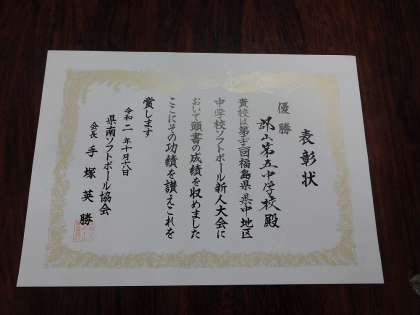 表彰状
優勝
郡山第五中学校殿
貴校は第三回福島県県中地区
中学校ソフトボール新人大会に
おいて頭書の成績を収めました
ここにその功績を讃えこれを
賞します
令和二年十月六日
県南ソフトボール協会
会長 手塚英勝